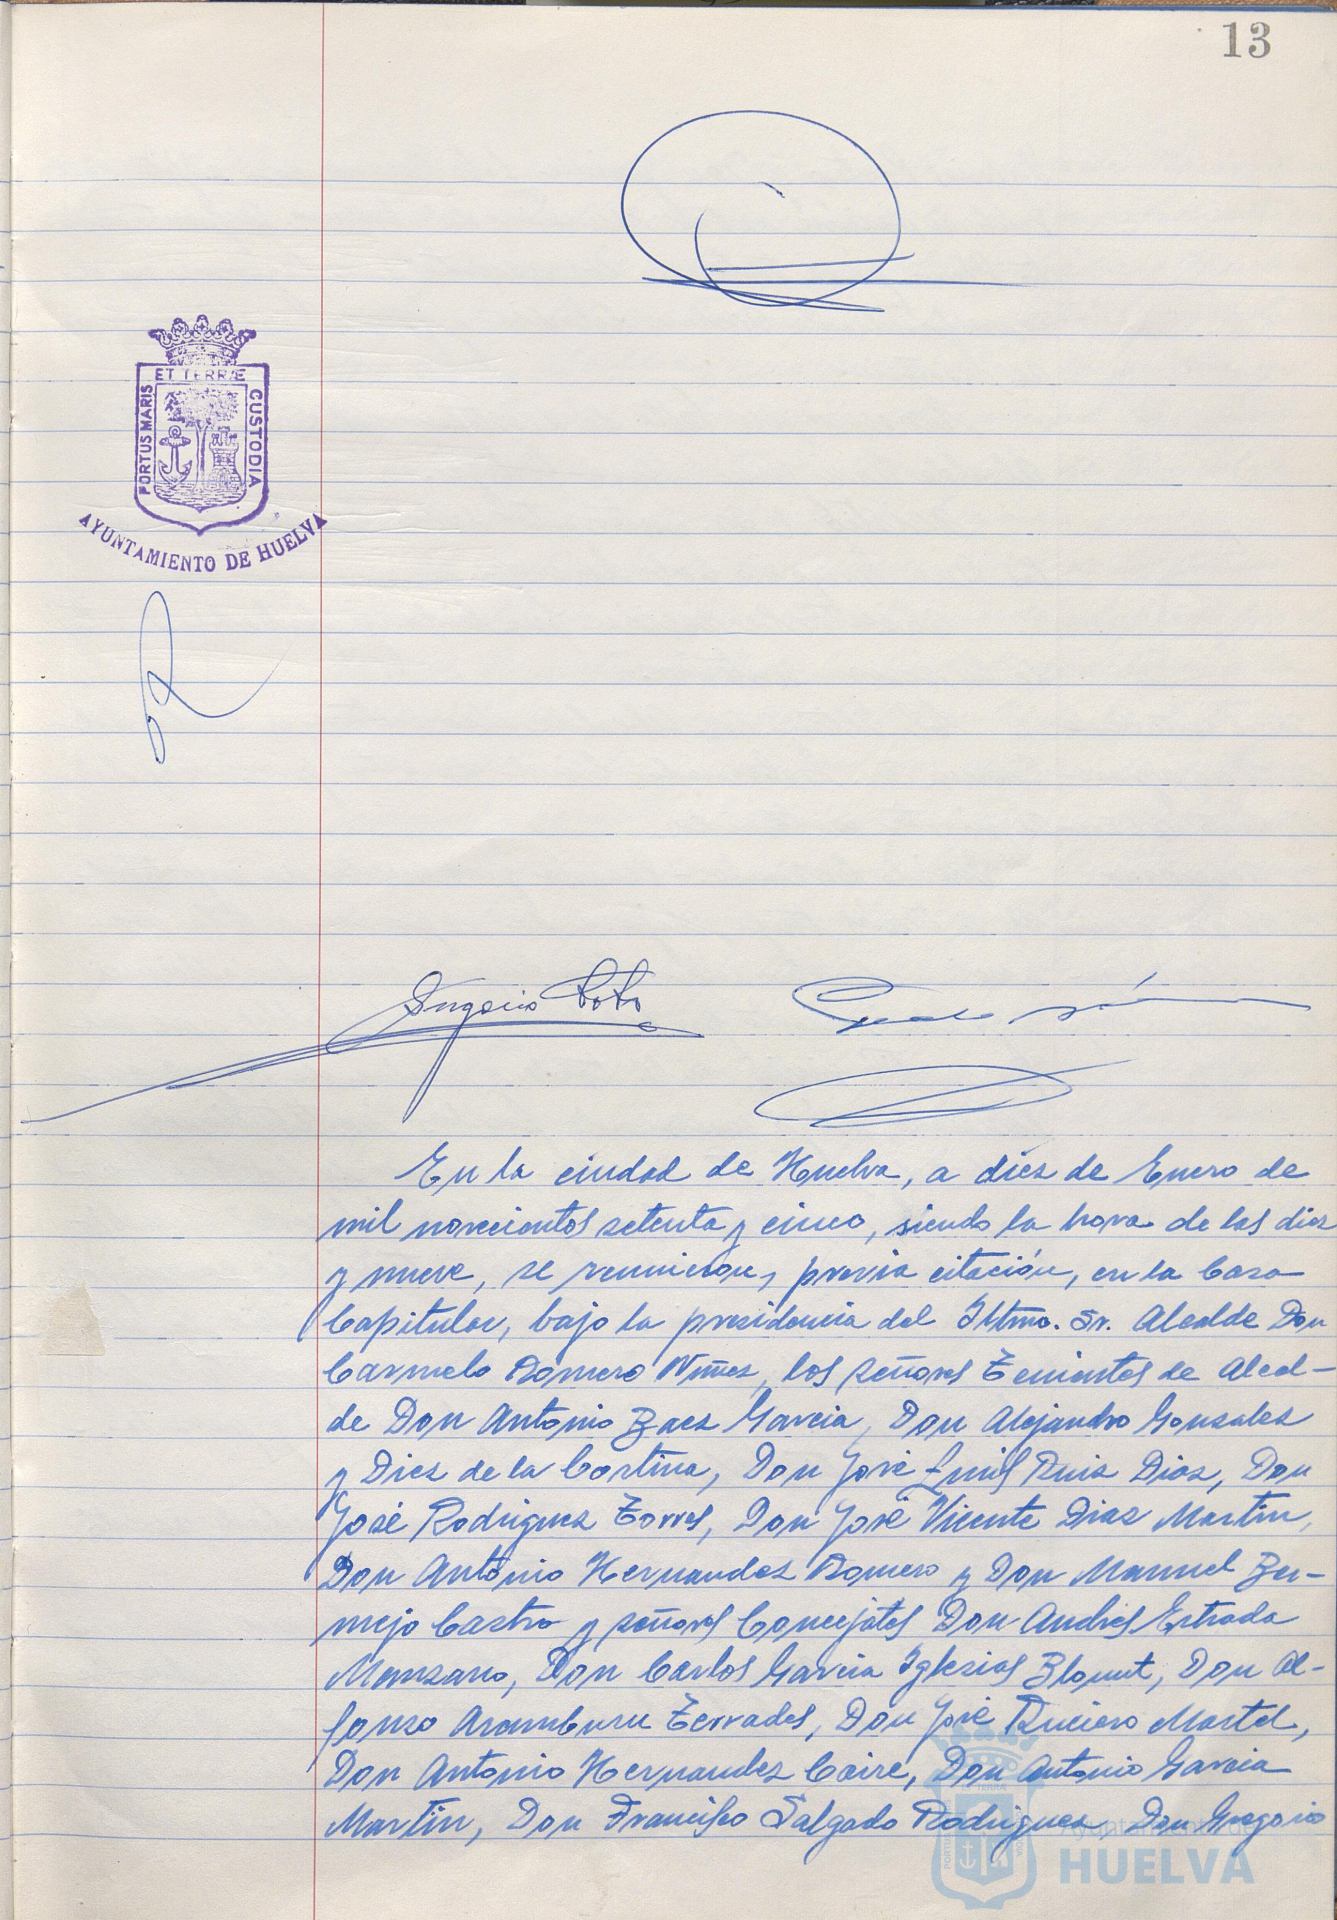 13
ET TERRÆ
PORTUS MARIS
CUSTODIA
AYUNTAMIENTO DE HUELVA
En la ciudad de Huelva, a diez de Enero de
mil novecientos setenta y cinco, siendo la hora de las diez
y nueve, se reunieron, previa citación, en la Casa
Capitular, bajo la presidencia del Iltmo. Sr. Alcalde Don
Carmelo Romero Núñez, los señores Tenientes de Alcal-
de Don Antonio Baez Garcia, Don Alejandro Gonzalez
y Diez de la Cortina, Don José Luis Ruiz Diaz, Don
José Rodriguez Torres, Don José Vicente Diaz Martin,
Don Antonio Hernandez Romero y Don Manuel Ber-
mejo Castro y señores Concejales Don Andrés Estrada
Manzano, Don Carlos Garcia Iglesias Blomut, Don Al-
fonso Aramburu Terrades, Don José Martel,
Don Antonio Hernandez Caire, Don Antonio Garcia
Martin, Don Francisco Salgado Rodriguez, Don Gregorio
Ayuntamiento de
HUELVA